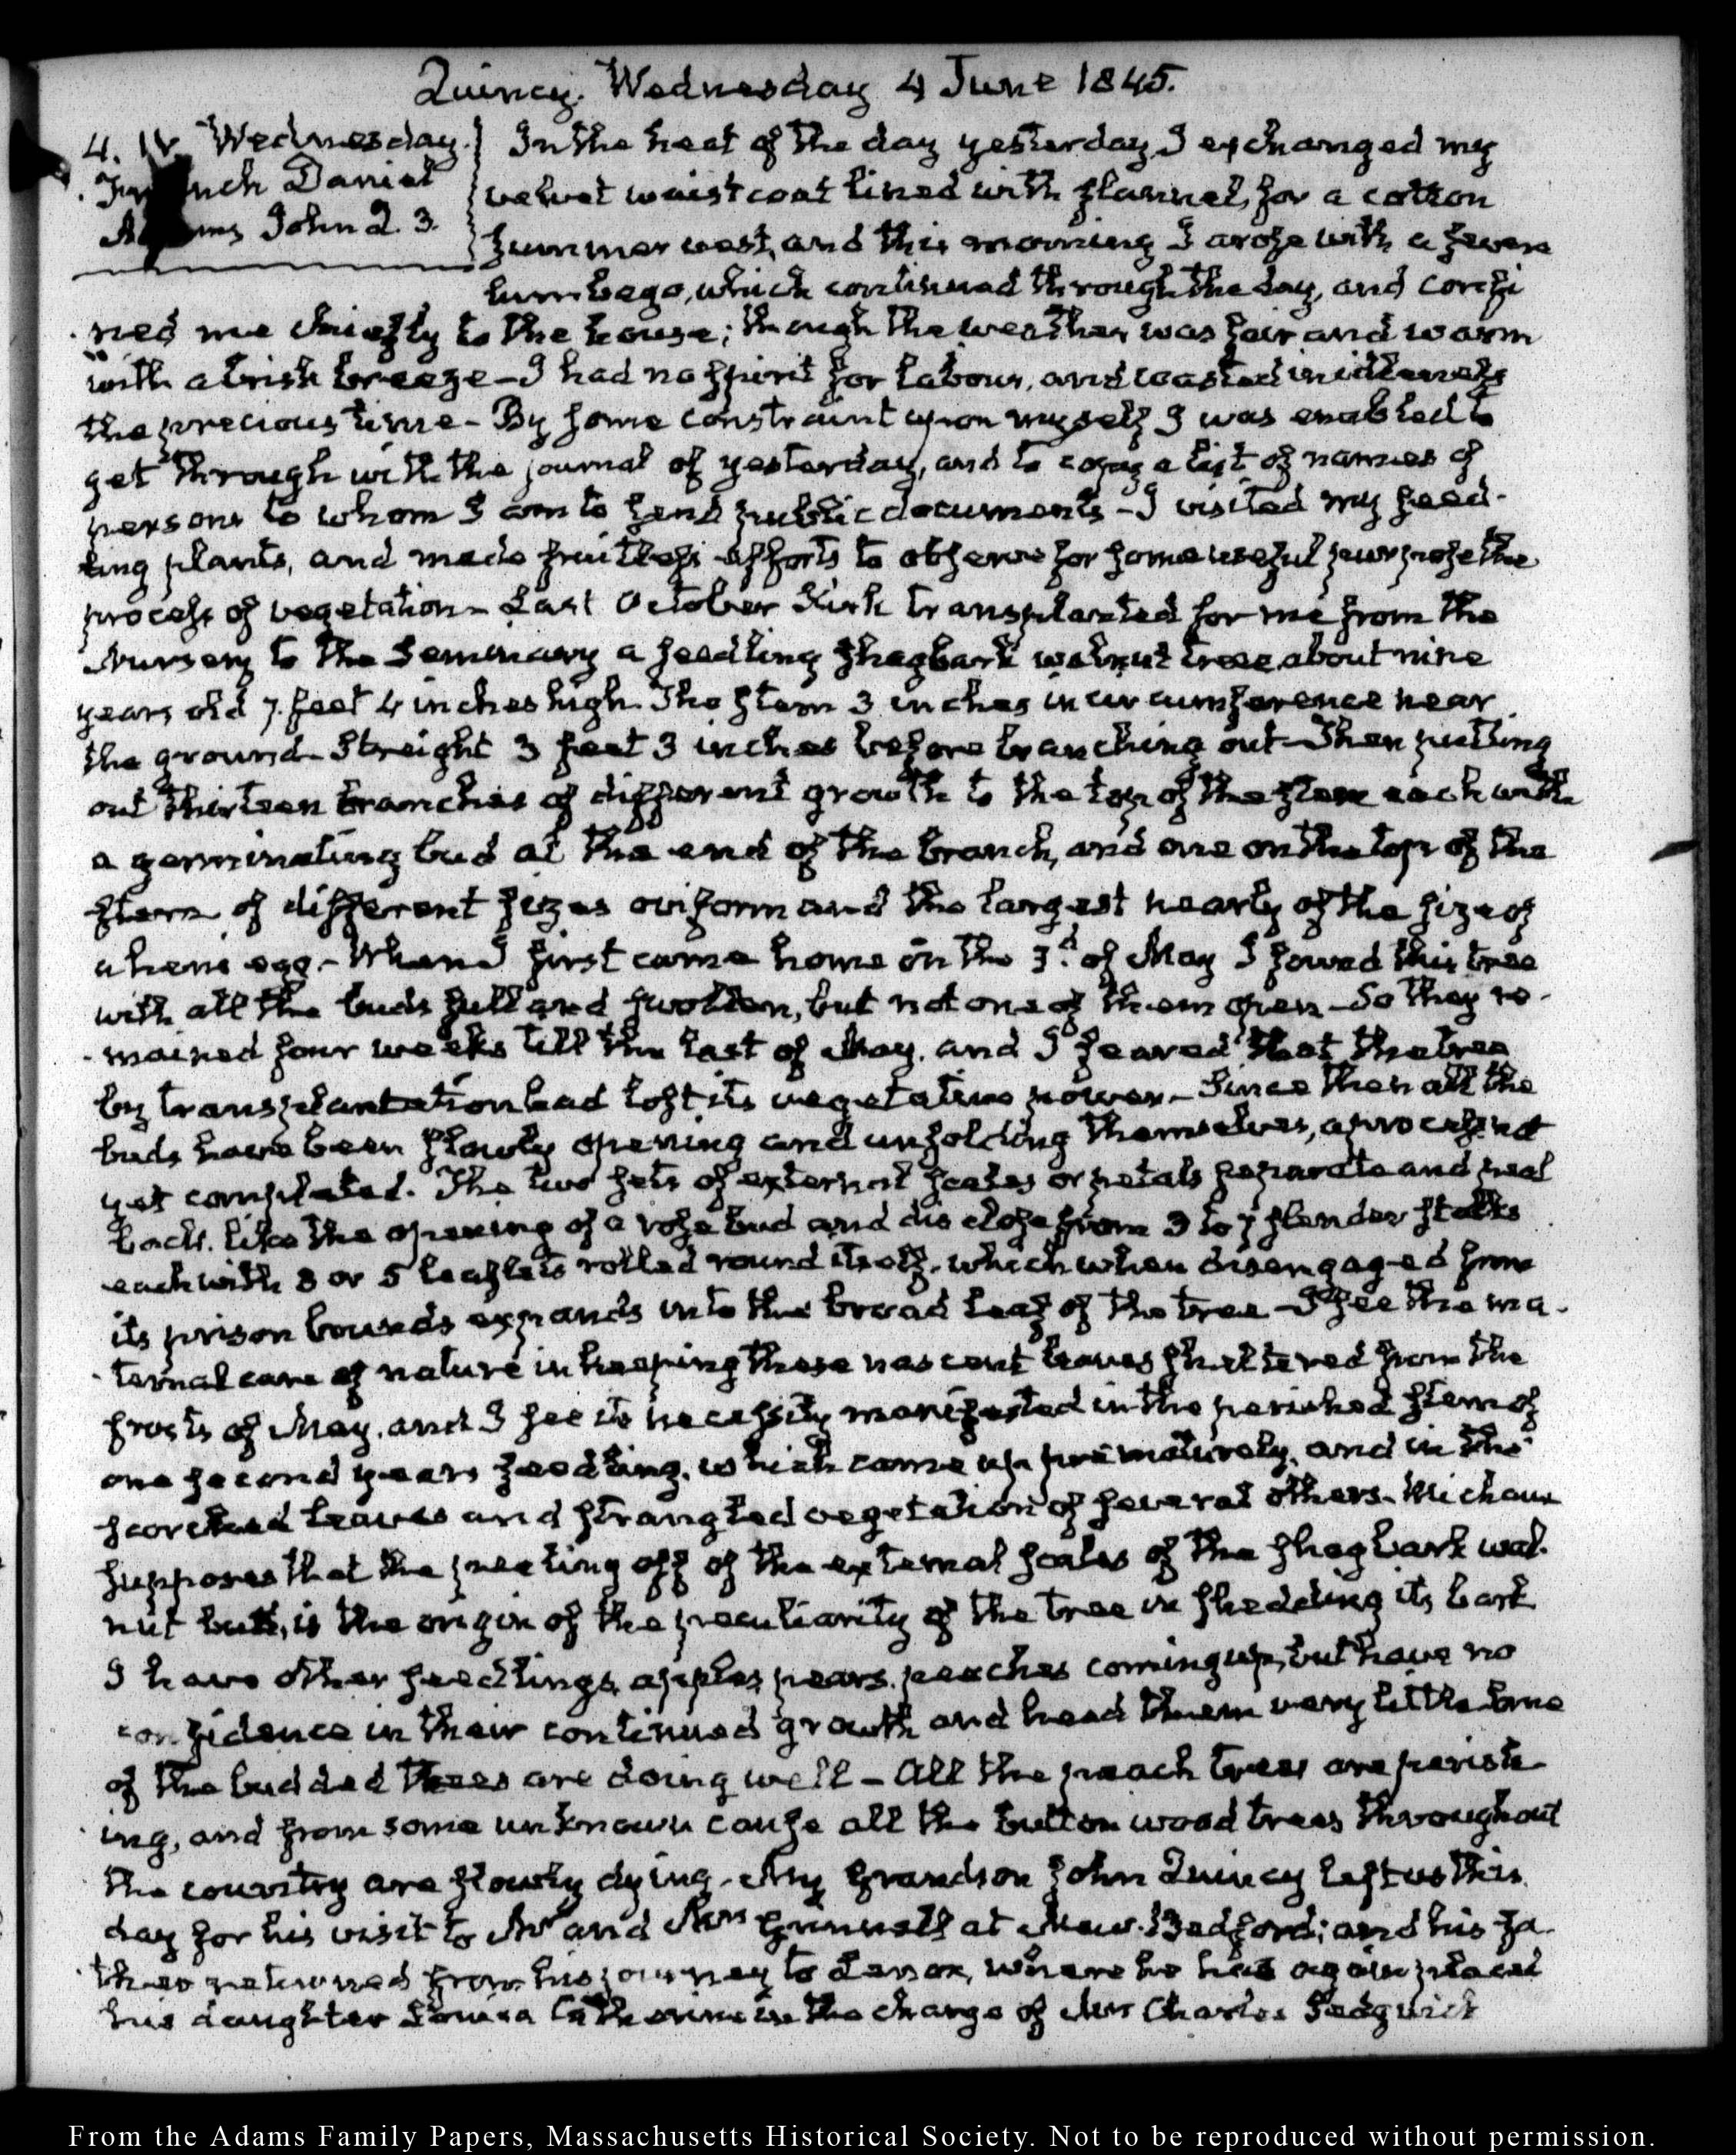 Quincy. Wednesday 4 June 1845.
4. IV. Wednesday.
French Daniel
Adams John Q. 3.
In the heat of the day yesterday I exchanged my
velvet waistcoat lined with flannel, for a cotton
summer vest, and this morning I arose with a severe
lumbago, which continued through the day, and confi
ned me chiefly to the house; though the weather was fair and warm
with a brisk breeze – I had no spirit for labour, and wasted in idleness
the precious time – By some constraint upon myself I was enabled to
get through with the journal of yesterday, and to copy a list of names of
persons to whom I am to send public documents – I visited my seed-
ling plants, and made fruitless efforts to observe for some useful purpose the
process of vegetation – Last October Kirk transplanted for me from the
Nursery to the Seminary a seedling shagbark walnut tree, about nine
years old 7 feet 4 inches high. The stem 3 inches in circumference near
the ground – Streight 3 feet 3 inches before branching out – Then putting
out thirteen branches of different growth to the top of the stem each with
a germinating bud at the end of the branch, and one on the top of the
stem of different sizes oviform and the largest nearly of the size of
a hens egg. – When I first came home on the 3.d of May I found this tree
with all the buds full and swollen, but not one of them open – So they re-
mained four weeks till the last of May, and I feared that the tree
by transplantation had lost its vegetative power. – Since then all the
buds have been slowly opening and unfolding themselves, a process not
yet completed. The two sets of external scales or petals separate and peal
back, like the opening of a rose bud and disclose from 3 to 7 slender stalks
each with 3 or 5 leaflets rolled round itself, which when disengaged from
its prison bounds expands into the broad leaf of the tree – I see the ma-
ternal care of nature in keeping these nascent leaves sheltered from the
frosts of May, and I see its necessity manifested in the perished stem of
one second years seedling, which came up prematurely, and in the
scorched leaves and strangled vegetation of several others. Michaux
supposes that the peeling off of the external scales of the shagbark wal-
nut buds, is the origin of the peculiarity of the tree in shedding its bark
I have other seedlings, apples, pears, peaches coming up, but have no
confidence in their continued growth and heed them very little Some
of the budded trees are doing well – All the peach trees are perish-
ing, and from some unknown cause all the button wood trees throughout
the country are slowly dying. My Grandson John Quincy left us this
day for his visit to Mr and Mrs Grinnell at New-Bedford; and his fa-
ther returned from his journey to Lenox, where he has again placed
his daughter Louisa Catherine in the charge of Mrs Charles Sedgwick
From the Adams Family Papers, Massachusetts Historical Society. Not to be reproduced without permission.